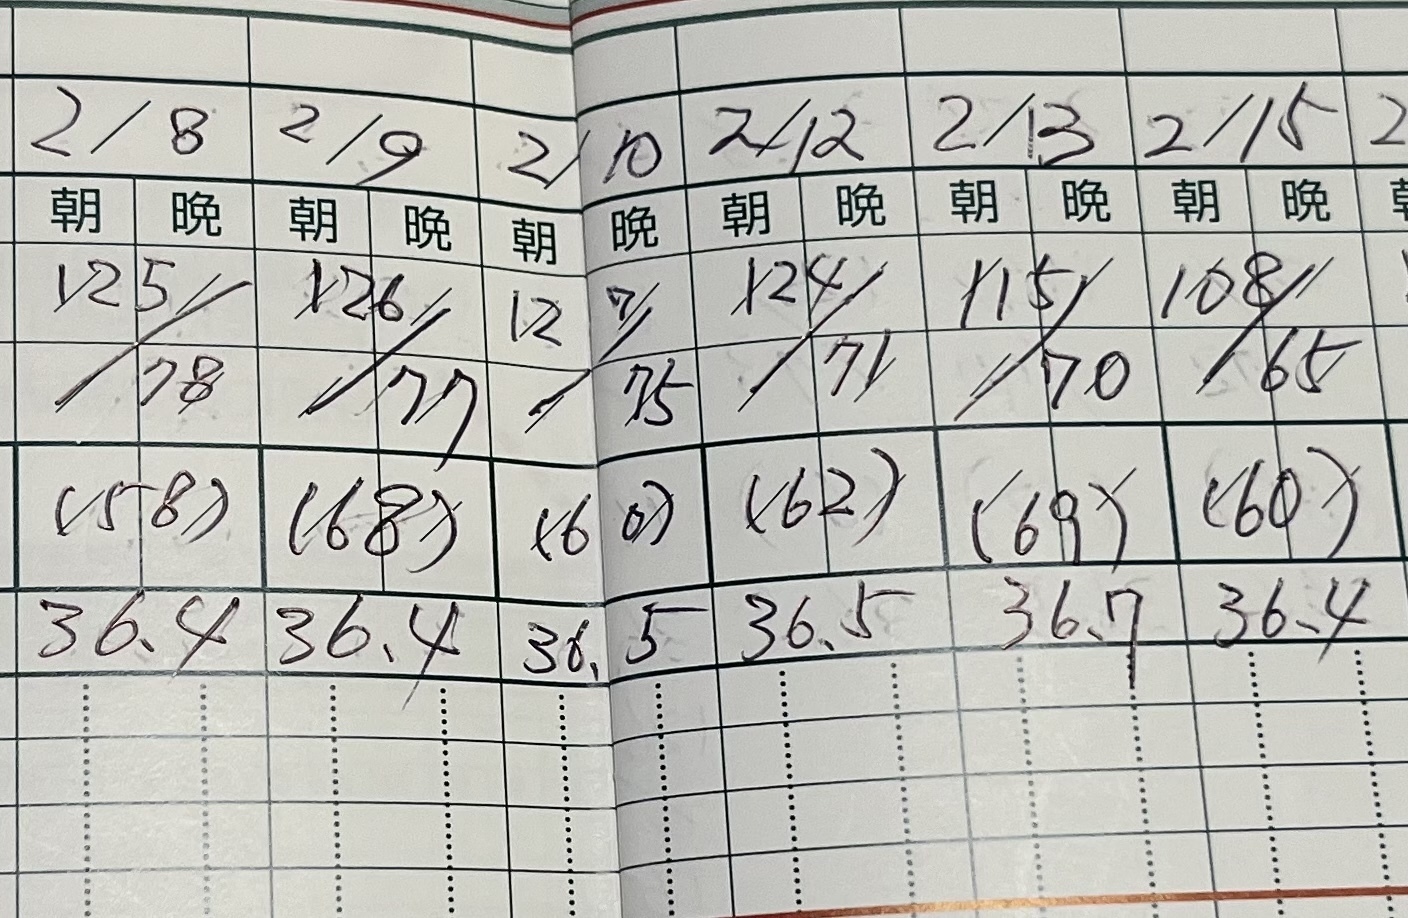 2/8 2/9 2/10 2/12 2/13 2/15 2
朝 晩 朝 晩 朝 晩 朝 晩 朝 晩 朝 晩
125/ 126/ 127/ 124/ 115/ 108/
/78 /77 /75 /71 /70 /65
(58) (68) (60) (62) (69) (60)
36.4 36.4 36.5 36.5 36.7 36.4